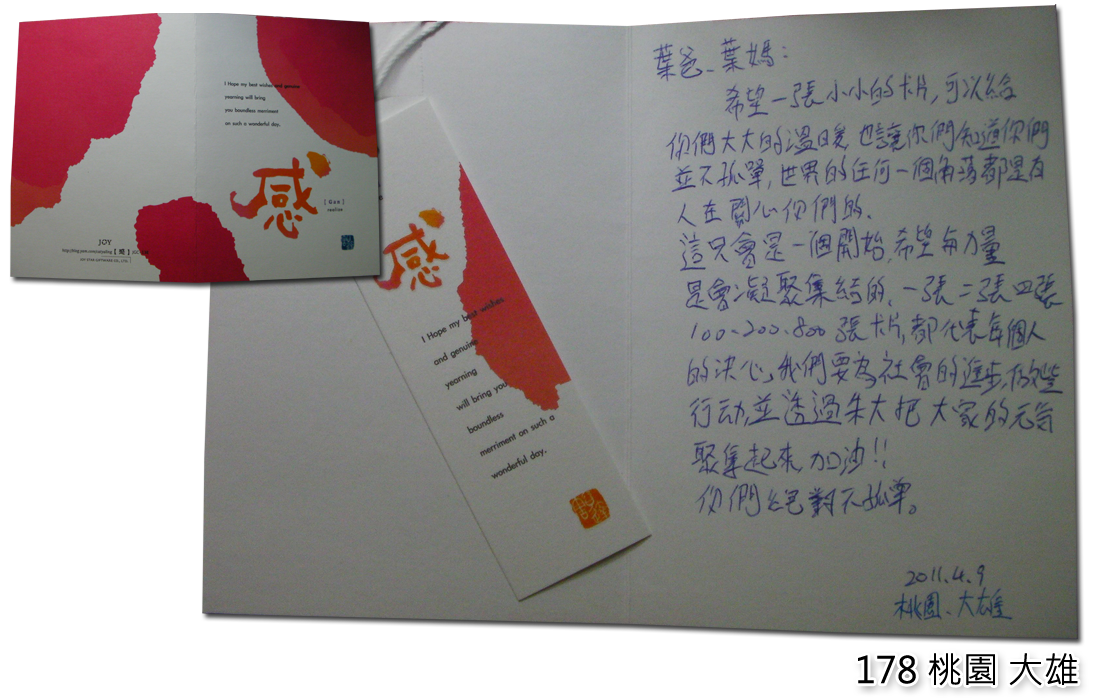 I Hope my best wishes and genuine
yearning will bring
you boundless merriment
on such a wonderful day.
感
[ Gan ]
JOY
感
I Hope my best wishes
and genuine
yearning
will bring you
boundless
merriment on such a
wonderful day.
葉爸、葉媽:
希望一張小小的卡片,可以給
你們大大的溫暖,也讓你們知道你們
並不孤單,世界的任何一個角落都是有
人在關心你們的、
這只會是一個開始,希望每力量
是會凝聚集結的、一張二張四張
100、200、800張卡片,都代表每個人
的決心,我們要為社會的進步,做些
行动,並透過朱大把大家的元氣
聚集起來,加油!!
你們絕對不孤單。
2011.4.9
桃園、大雄
178 桃園 大雄